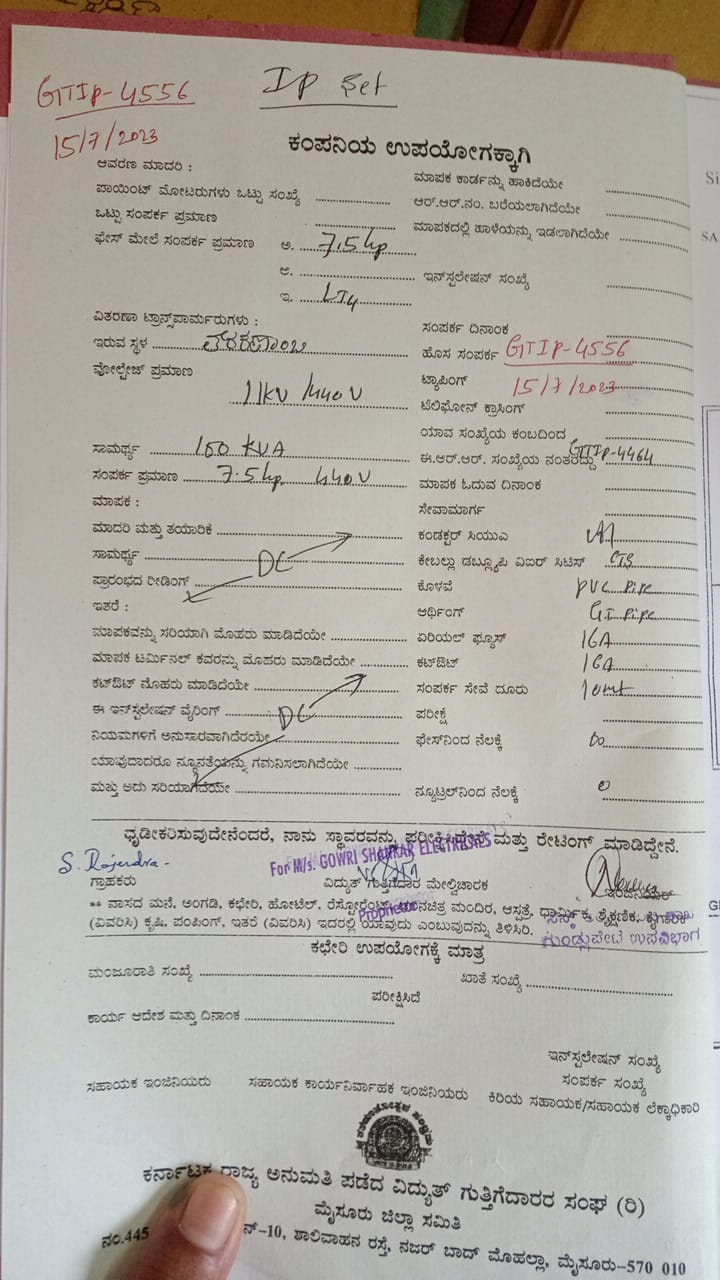 GTIP-4556
IP Set
15/7/2023
ಕಂಪನಿಯ ಉಪಯೋಗಕ್ಕಾಗಿ
ಆವರಣ ಮಾದರಿ :
ಮಾಪಕ ಕಾರ್ಡನ್ನು ಹಾಕಿದೆಯೇ
ಪಾಯಿಂಟ್ ಮೋಟರುಗಳು ಒಟ್ಟು ಸಂಖ್ಯೆ
ಆರ್.ಆರ್.ನಂ. ಬರೆಯಲಾಗಿದೆಯೇ
ಒಟ್ಟು ಸಂಪರ್ಕ ಪ್ರಮಾಣ
ಮಾಪಕದಲ್ಲಿ ಹಾಳೆಯನ್ನು ಇಡಲಾಗಿದೆಯೇ
ಫೇಸ್ ಮೇಲೆ ಸಂಪರ್ಕ ಪ್ರಮಾಣ ಅ. 7.5 hp
ಅ. ಇನ್‌ಸ್ಟಲೇಷನ್ ಸಂಖ್ಯೆ
ಇ. LT4
ವಿತರಣಾ ಟ್ರಾನ್ಸ್‌ಪಾರ್ಮರುಗಳು :
ಸಂಪರ್ಕ ದಿನಾಂಕ
ಇರುವ ಸ್ಥಳ
ಹೊಸ ಸಂಪರ್ಕ GTIP-4556
ವೋಲ್ಟೇಜ್ ಪ್ರಮಾಣ 11KV/440V
ಟ್ಯಾಪಿಂಗ್ 15/7/2023
ಟೆಲಿಫೋನ್ ಕ್ರಾಸಿಂಗ್
ಯಾವ ಸಂಖ್ಯೆಯ ಕಂಬದಿಂದ
ಸಾಮರ್ಥ್ಯ 100 KVA
ಈ.ಆರ್.ಆರ್. ಸಂಖ್ಯೆಯ ನಂತರದ್ದು GTIP-4464
ಸಂಪರ್ಕ ಪ್ರಮಾಣ 7.5 hp 440V
ಮಾಪಕ ಓದುವ ದಿನಾಂಕ
ಮಾಪಕ :
ಸೇವಾಮಾರ್ಗ
ಮಾದರಿ ಮತ್ತು ತಯಾರಿಕೆ
ಕಂಡಕ್ಟರ್ ಸಿಯುಎ Al
ಸಾಮರ್ಥ್ಯ DC
ಕೇಬಲ್ಲು ಡಬ್ಲ್ಯೂಪಿ ವಿಐರ್ ಸಿಟಿಸ್ CTS
ಪ್ರಾರಂಭದ ರೀಡಿಂಗ್
ಕೊಳವೆ PVC Pipe
ಇತರೆ :
ಆರ್ಥಿಂಗ್ GI Pipe
ಮಾಪಕವನ್ನು ಸರಿಯಾಗಿ ಮೊಹರು ಮಾಡಿದೆಯೇ
ಏರಿಯಲ್ ಫ್ಯೂಸ್ 16A
ಮಾಪಕ ಟರ್ಮಿನಲ್ ಕವರನ್ನು ಮೊಹರು ಮಾಡಿದೆಯೇ
ಕಟ್‌ಔಟ್ 16A
ಕಟ್‌ಔಟ್ ಮೊಹರು ಮಾಡಿದೆಯೇ
ಸಂಪರ್ಕ ಸೇವೆ ದೂರು 10mt
ಈ ಇನ್‌ಸ್ಟಲೇಷನ್ ವೈರಿಂಗ್ DC
ಪರೀಕ್ಷೆ
ನಿಯಮಗಳಿಗೆ ಅನುಸಾರವಾಗಿದೆರಯೇ
ಫೇಸ್‌ನಿಂದ ನೆಲಕ್ಕೆ
ಯಾವುದಾದರೂ ನ್ಯೂನತೆಯನ್ನು ಗಮನಿಸಲಾಗಿದೆಯೇ
ಮತ್ತು ಅದು ಸರಿಯಾಗಿದೆಯೇ
ನ್ಯೂಟ್ರಲ್‌ನಿಂದ ನೆಲಕ್ಕೆ 0
ಧೃಡೀಕರಿಸುವುದೇನೆಂದರೆ, ನಾನು ಸ್ಥಾವರವನ್ನು ಪರೀಕ್ಷಿಸಿದ್ದೇನೆ ಮತ್ತು ರೇಟಿಂಗ್ ಮಾಡಿದ್ದೇನೆ.
For M/s. GOWRI SHANKAR ELECTRICALS
S. Rajendra
ಗ್ರಾಹಕರು
ವಿದ್ಯುತ್ ಗುತ್ತಿಗೆದಾರ ಮೇಲ್ವಿಚಾರಕ
ಇಂಜಿನಿಯರ್
Proprietor
** ವಾಸದ ಮನೆ, ಅಂಗಡಿ, ಕಛೇರಿ, ಹೋಟೆಲ್, ರೆಸ್ಟೋರೆಂಟ್, ಚಲನಚಿತ್ರ ಮಂದಿರ, ಆಸ್ಪತ್ರೆ, ಧಾರ್ಮಿಕ, ಶೈಕ್ಷಣಿಕ, ಕೈಗಾರಿಕೆ
(ವಿವರಿಸಿ) ಕೃಷಿ, ಪಂಪಿಂಗ್, ಇತರೆ (ವಿವರಿಸಿ) ಇದರಲ್ಲಿ ಯಾವುದು ಎಂಬುವುದನ್ನು ತಿಳಿಸಿರಿ.
ಗುಂಡ್ಲುಪೇಟೆ ಉಪವಿಭಾಗ
ಕಛೇರಿ ಉಪಯೋಗಕ್ಕೆ ಮಾತ್ರ
ಮಂಜೂರಾತಿ ಸಂಖ್ಯೆ
ಖಾತೆ ಸಂಖ್ಯೆ
ಪರೀಕ್ಷಿಸಿದೆ
ಕಾರ್ಯ ಆದೇಶ ಮತ್ತು ದಿನಾಂಕ
ಇನ್‌ಸ್ಟಲೇಷನ್ ಸಂಖ್ಯೆ
ಸಂಪರ್ಕ ಸಂಖ್ಯೆ
ಸಹಾಯಕ ಇಂಜಿನಿಯರು ಸಹಾಯಕ ಕಾರ್ಯನಿರ್ವಾಹಕ ಇಂಜಿನಿಯರು ಕಿರಿಯ ಸಹಾಯಕ/ಸಹಾಯಕ ಲೆಕ್ಕಾಧಿಕಾರಿ
ಕರ್ನಾಟಕ ರಾಜ್ಯ ಅನುಮತಿ ಪಡೆದ ವಿದ್ಯುತ್ ಗುತ್ತಿಗೆದಾರರ ಸಂಘ (ರಿ)
ಮೈಸೂರು ಜಿಲ್ಲಾ ಸಮಿತಿ
ನಂ.445 ನ್-10, ಶಾಲಿವಾಹನ ರಸ್ತೆ, ನಜರ್ ಬಾದ್ ಮೊಹಲ್ಲಾ, ಮೈಸೂರು-570 010